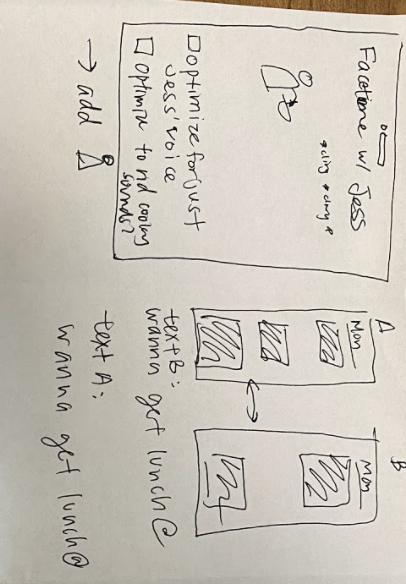 Facetime w/ Jess
*cling *clang *
optimize for just
Jess' voice
optimize to rid cooking
sounds?
→ add
A
Mon
B
Mon
text B:
wanna get lunch@
text A:
wanna get lunch@